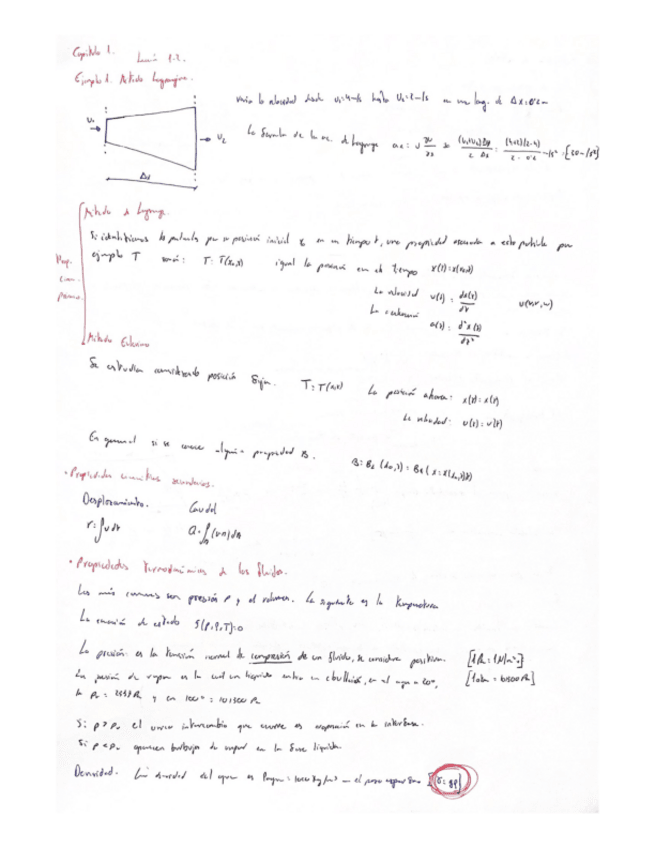 Capítulo 1. Lección 1.2.
Ejemplo 1. Método Lagrangiano.
varía la velocidad desde V₁=4 m/s hasta V₂=2 m/s en una long. de Δx=0'2m
V₁
V₂
Δx
La fórmula de la ac. de Lagrange
Método de Lagrange.
Si identificamos la partícula por su posición inicial x₀ en un tiempo t, una propiedad asociada a esta partícula por
ejemplo T será: T=T(x₀,t) igual la posición en el tiempo x(t)=x(x₀,t)
La velocidad v(t) = dx(t)/dt
v(u,v,w)
a(t) = d²x(t)/dt²
Método Euleriano
Se estudian considerando posición fija. T=T(x,t) La posición ahora: x(t)=x(t)
La velocidad: v(t)=v(t)
En general si se conoce alguna propiedad B.
• Propiedades cinemáticas secundarias.
Desplazamiento. Caudal
r=∫v dt Q=∫(v·n)dA
• Propiedades Termodinámicas de los fluidos.
Las más comunes son presión P y el volumen. La siguiente es la temperatura
La ecuación de estado f(P,ρ,T)=0
La presión: es la tensión normal de compresión de un fluido, se considera positiva. [1Pa=1N/m²]
La presión de vapor es la cual un líquido entra en ebullición, en el agua a 20º,
y en 100º = 101300 Pa
Si P>Pv el único intercambio que ocurre es evaporación en la interfase.
Si P<Pv aparecen burbujas de vapor en la fase líquida.
Densidad. La densidad del agua es ρagua=1000kg/m³ el peso específico [γ=gρ]